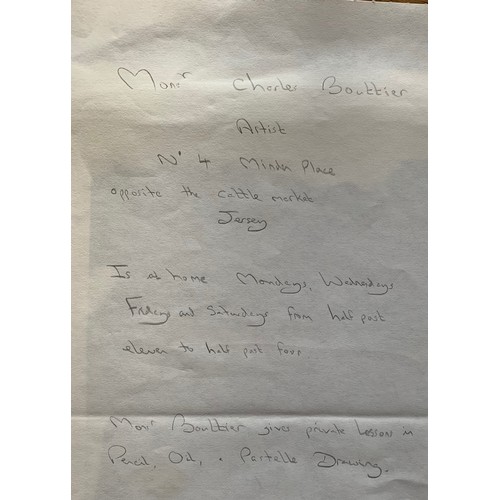 Monsr Charles Bouttier
Artist
No 4 Minden Place
opposite the cattle market
Jersey
Is at home Mondays, Wednesdays
Fridays and Saturdays from half past
eleven to half past four
Monsr Bouttier gives private Lessons in
Pencil, Oil, + Pastelle Drawing.